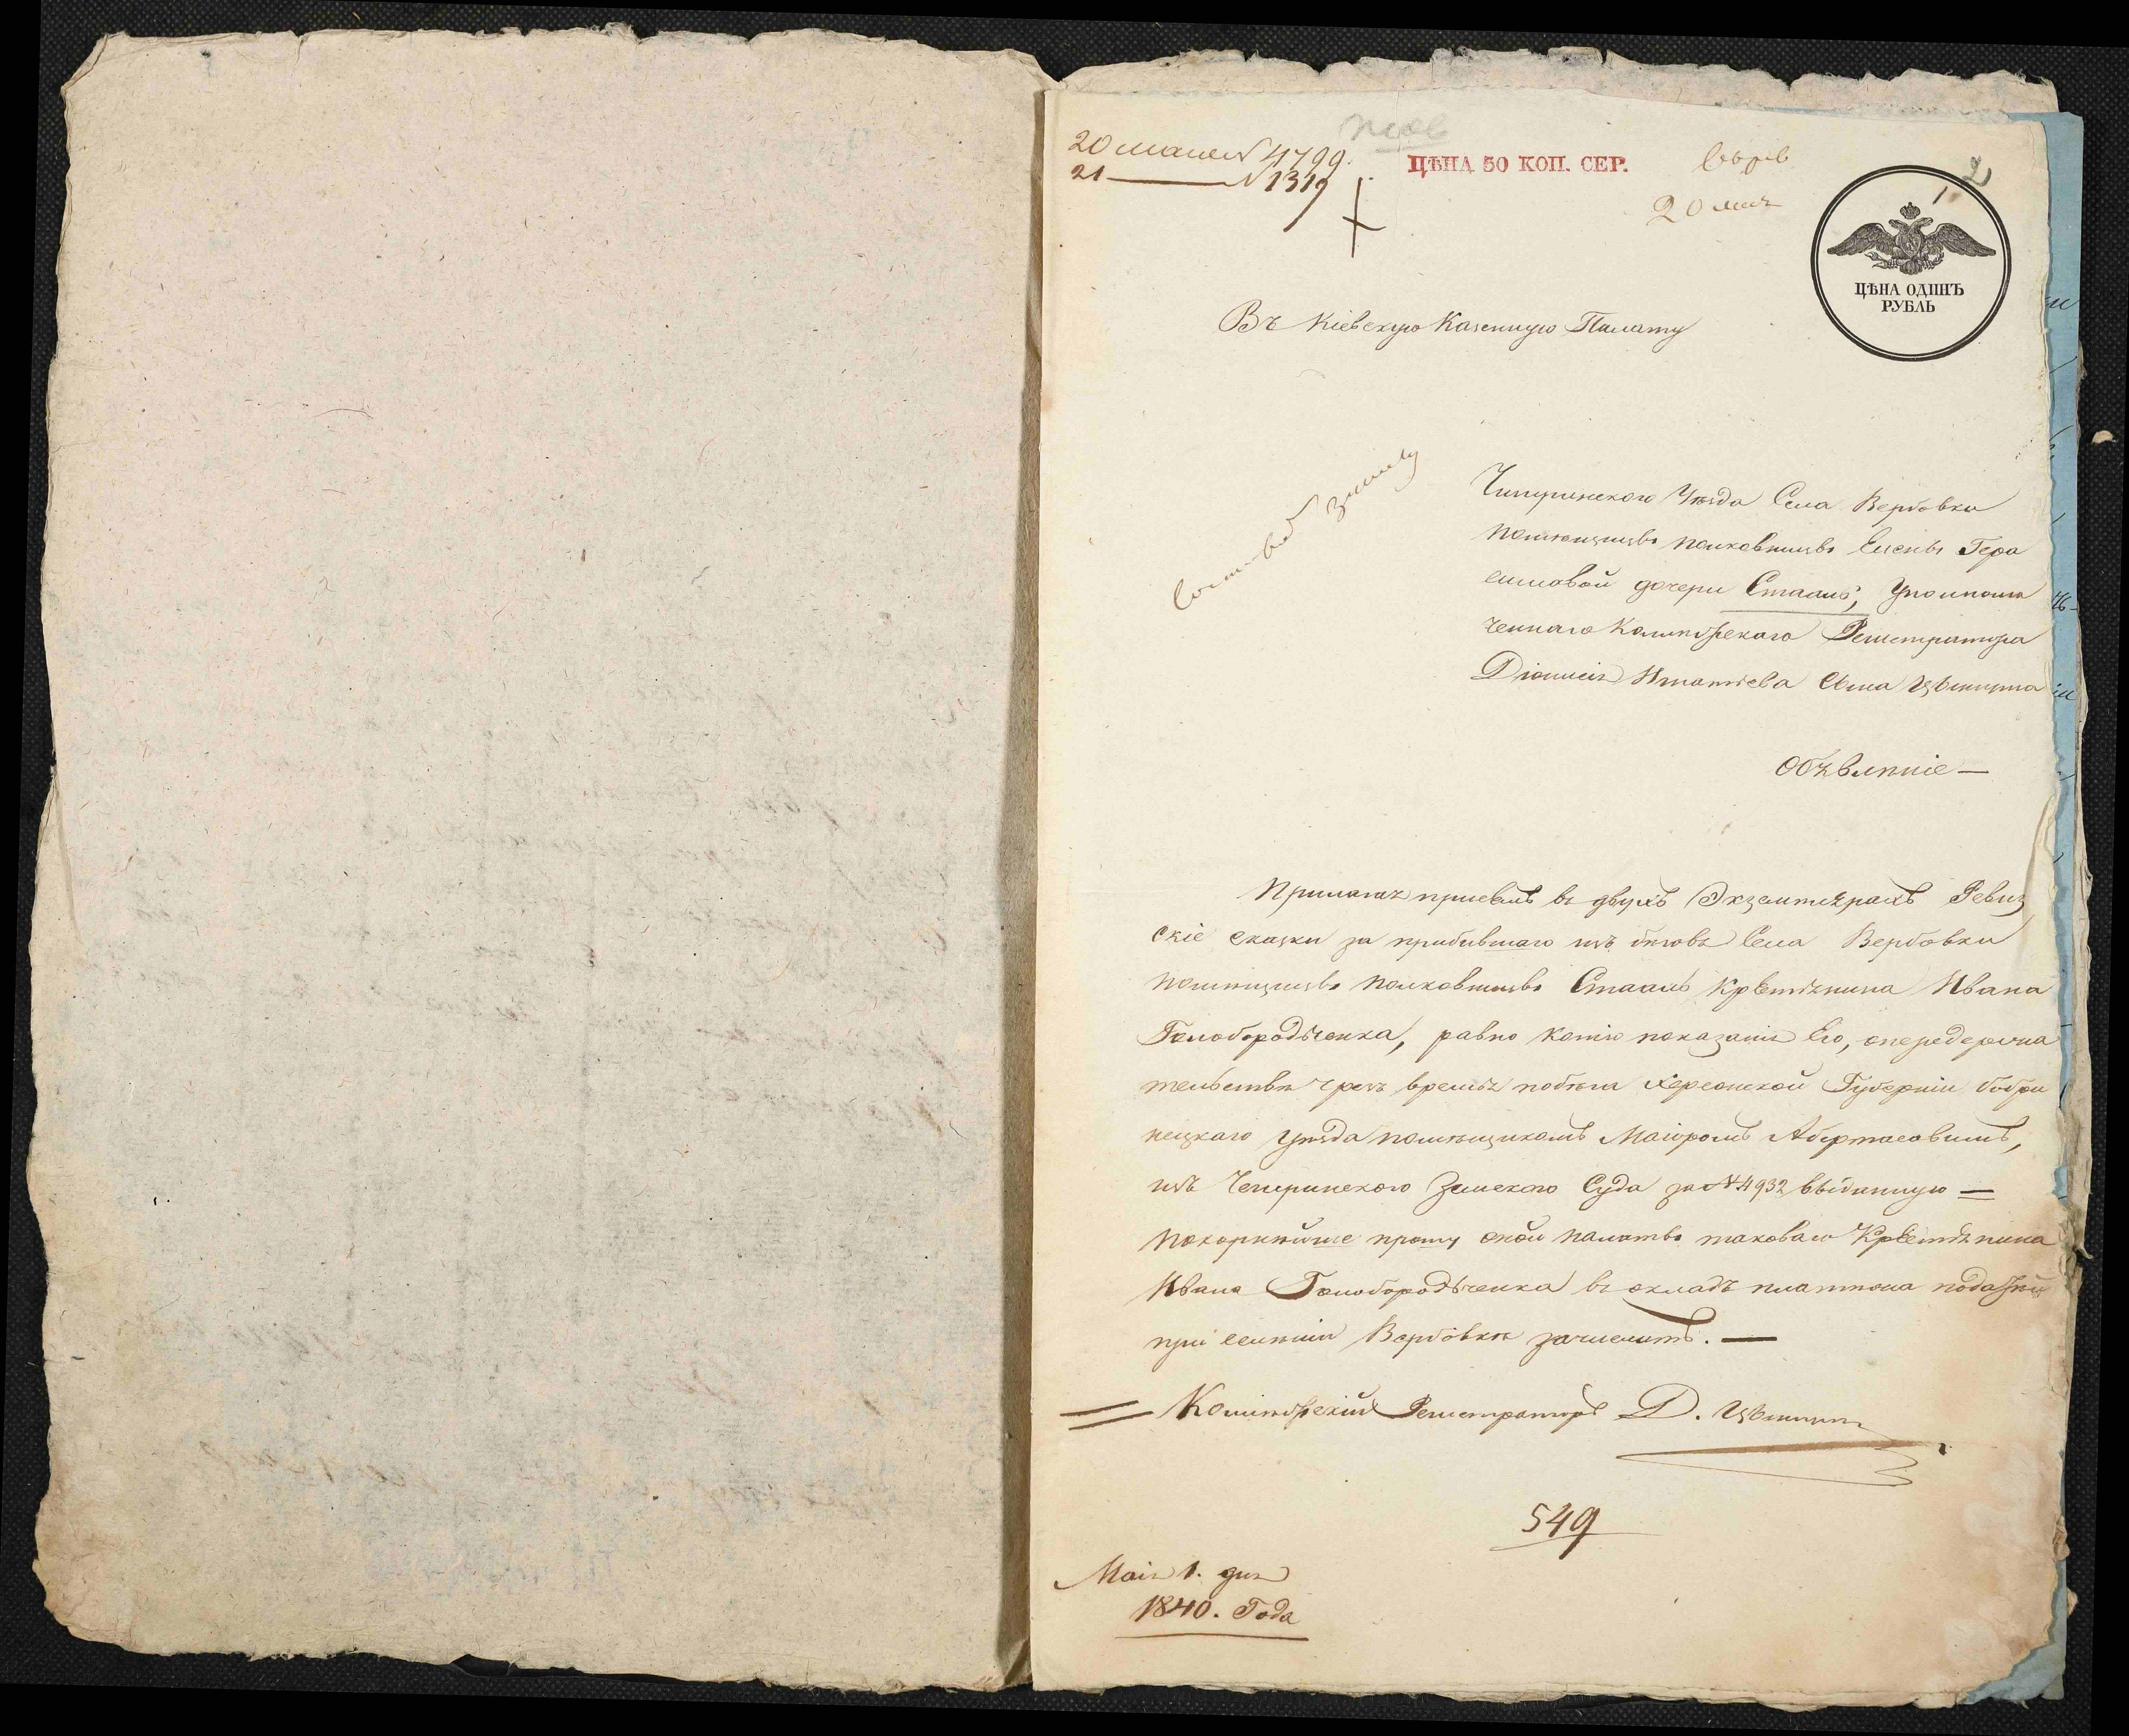 20 мая № 4799.
21 — № 1319
ЦѢНА 50 КОП. СЕР.
20 мая
2
ЦѢНА ОДИНЪ
РУБЛЬ
Въ Кіевскую Казенную Палату
Чигиринского Уѣзда Села Вербовки
помѣщицы полковницы Елены Гера
симовой дочери Стааль, Уполномо
ченнаго Колежскаго Регистратора
Діонисія Игнатіева Сына
Объявленіе —
Прилагая присемъ въ двухъ Экземплярахъ Ревиз
скіе сказки за прибывшаго изъ бѣговъ Села Вербовки
помѣщицы полковницы Стааль Крестьянина Ивана
Голобородченка, равно копію показанія Его, опередержа
тельствѣ чрезъ время побѣга Херсонской Губерніи Бобри
нецкаго уѣзда помѣщикомъ Маіоромъ
изъ Чегиринского Земского Суда за № 4932 выданную —
покорнѣйше прошу оной палаты таковаго Крестьянина
Ивана Голобородченка въ окладъ платежа податей
при селѣніи Вербовкѣ зачислить. —
Колежскій Регистраторъ Д.
549
Маія 1. дня
1840. Года